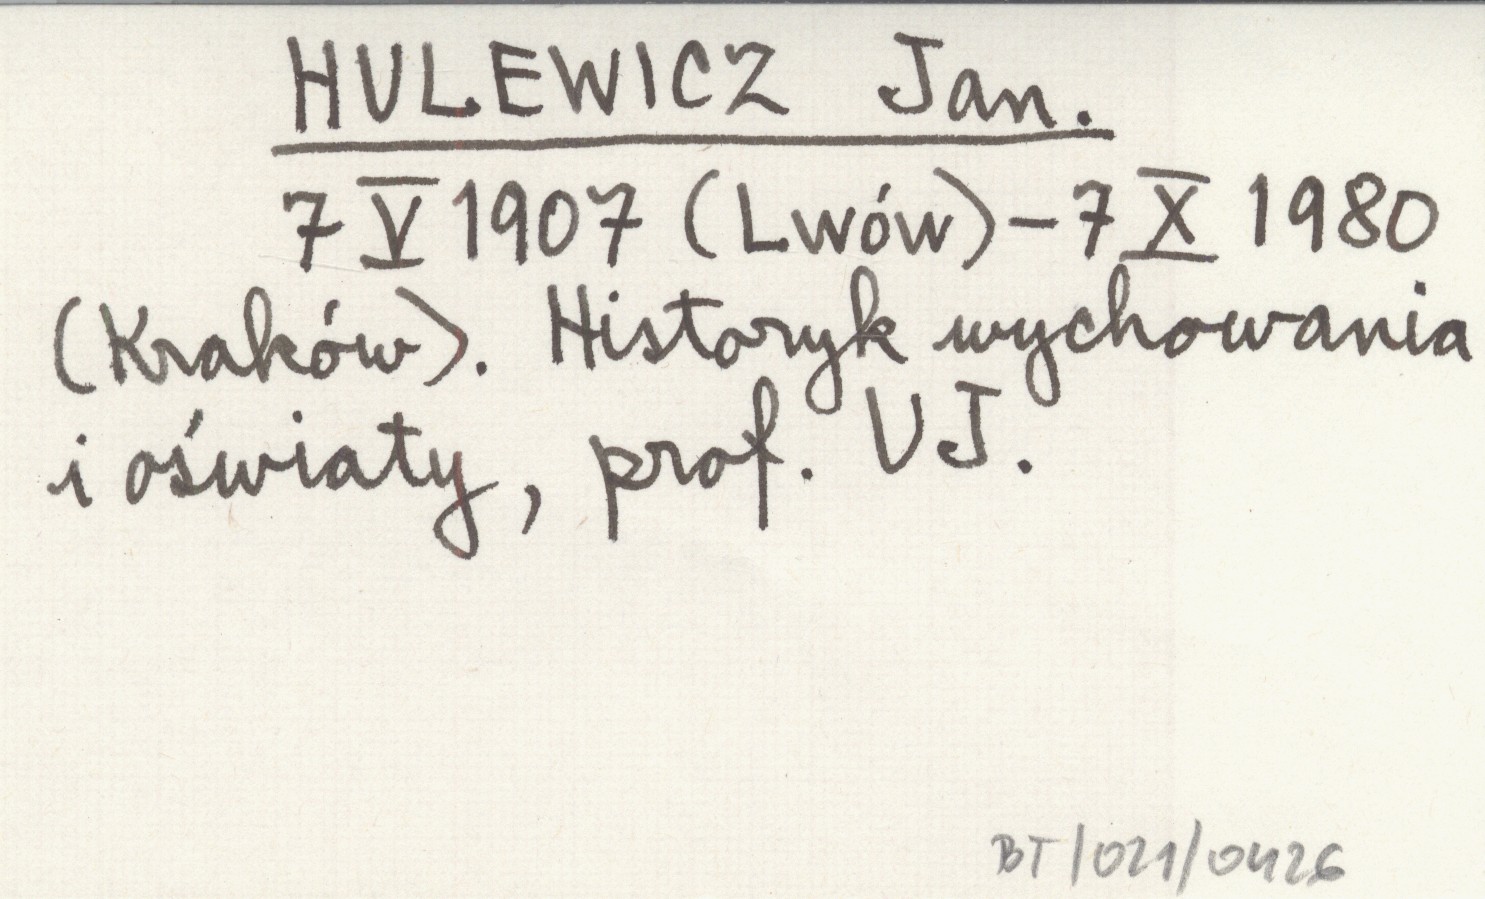 HULEWICZ Jan.
7 V 1907 (Lwów) – 7 X 1980
(Kraków). Historyk wychowania
i oświaty, prof. UJ.
BT/021/0426